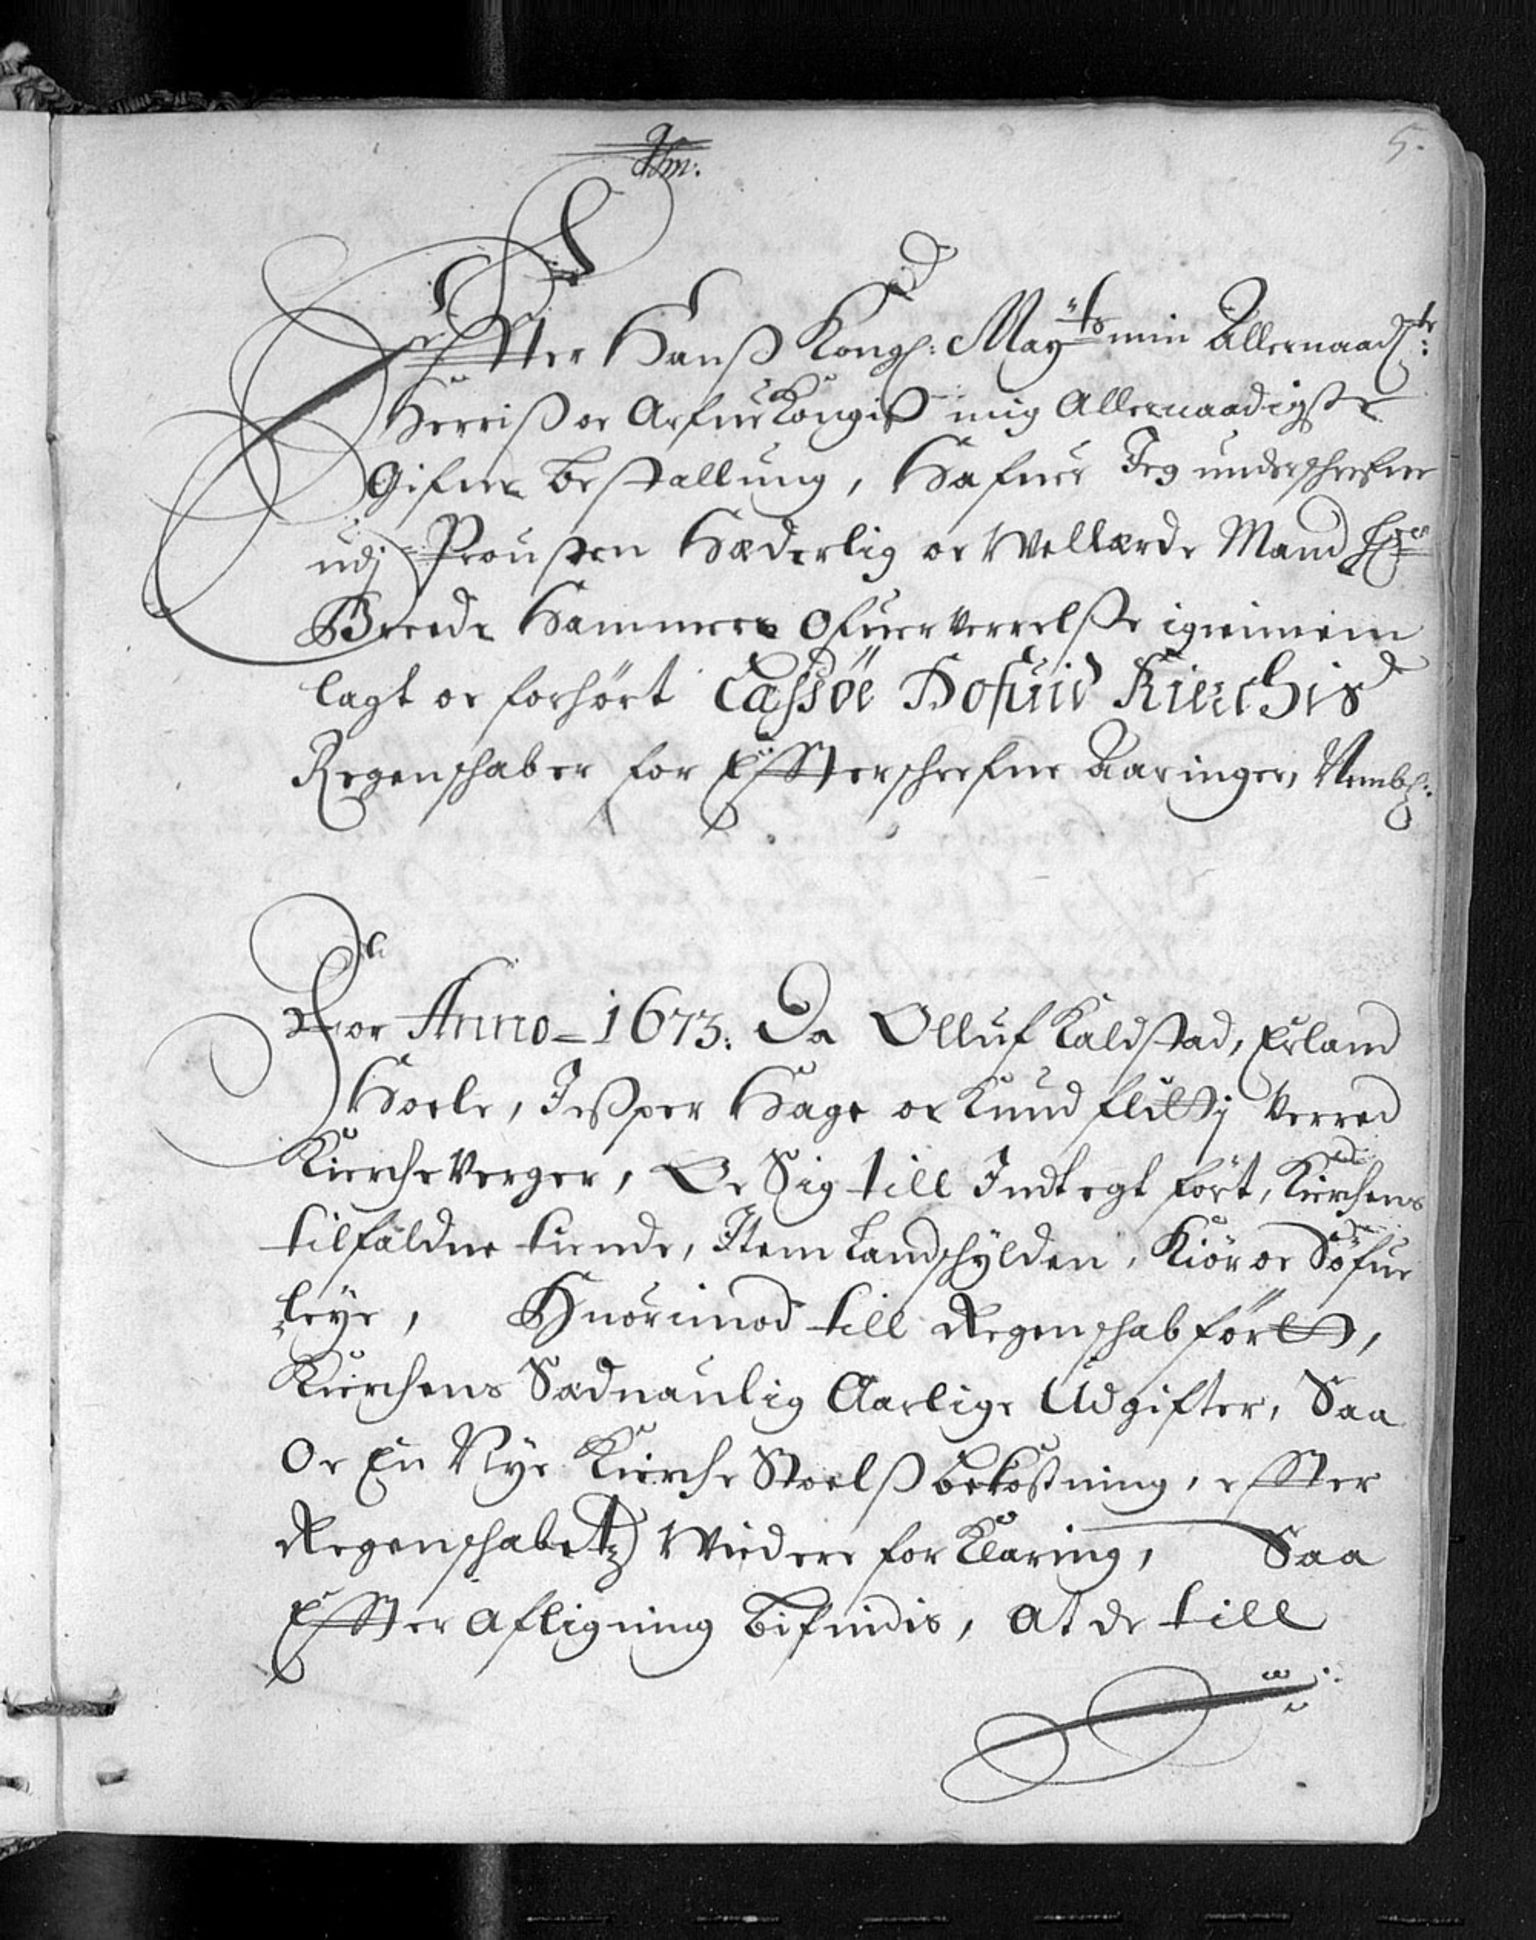 5.
Effter Hanß Kongl: May:ts min Allernaadgste:
Herriß oc Arfue Kongiß mig Allernaadigste
Gifne bestallung, Hafuer Jeg underschrefne
udj Prousten Hæderlig oc Wellærde Mand Hr
Hammers Ofueruerrelße igiennem
lagt oc forhørt Tassöe Hofuid Kierchis
Regenschaber for Effterschrefne Aaringer, Nembl:
For Anno = 1673. Da Olluf Kaldstad, Erland
Hoele, Jesper Hage oc Knud Verred
Kirche Verger, Oc Sig till Indtegt ført, Kierchens
tilfaldne tiende, Item Landschylden, Kiör oc
leye, Huorimod till Regenschab förts,
Kierchens Sædnaulig Aarlige Udgifter, Saa
Oc En Nye Kierche Stoelß bekostning, effter
Regenschabetz Widere for Klaring, Saa
Effter afligning bifindis, at de till